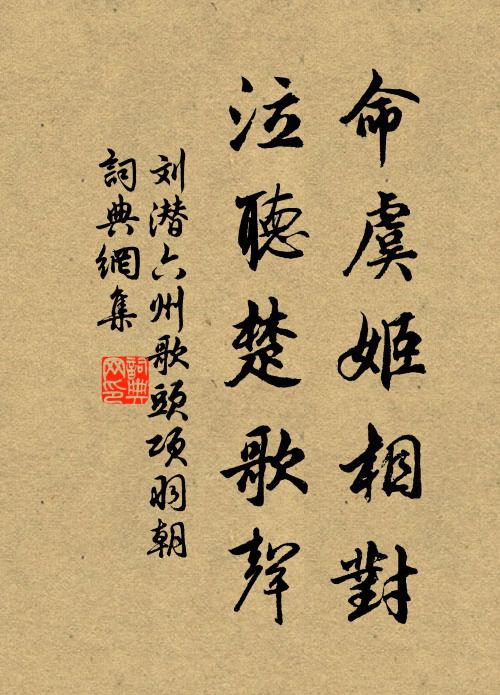 命虞姬相對
泣聽楚歌聲
刘潜六州歌頭項羽朝
詞典網集
詞典网印